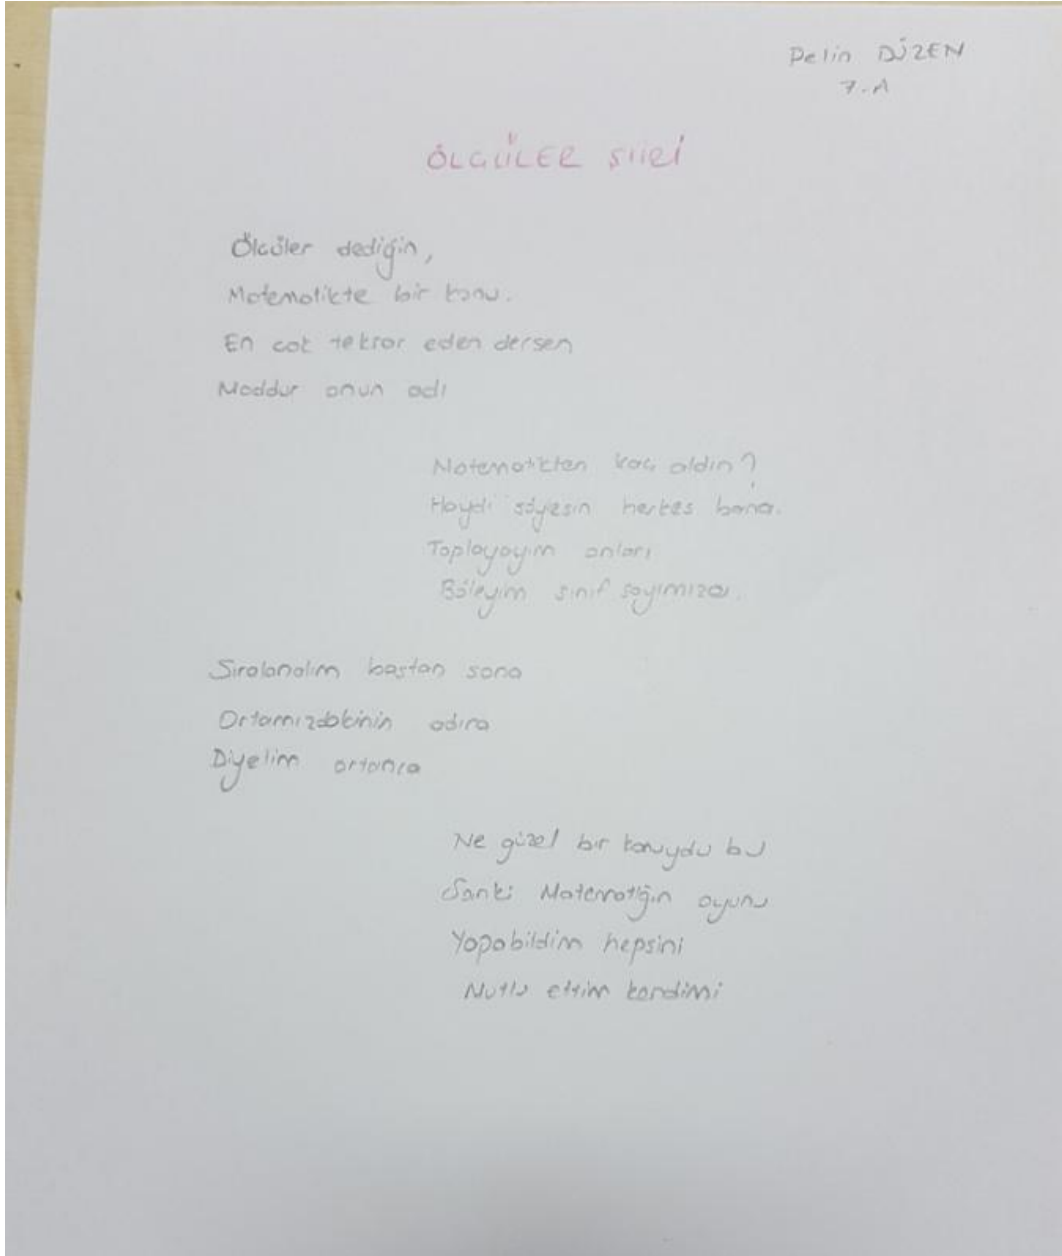 Pelin DÜZEN
7-A
ÖLÇÜLER ŞİİRİ
Ölcüler dediğin,
Matematikte bir konu.
En cok tekrar eden dersen
Moddur onun adı
Matematikten kaç aldın?
Haydi söylesin herkes bana.
Toplayayım onları
Böleyim sınıf sayımıza.
Sıralanalım bastan sona
Ortamızdakinin adına
Diyelim ortanca
Ne güzel bir konuydu bu
Sanki Matematiğin oyunu
Yapabildim hepsini
Mutlu ettim kendimi